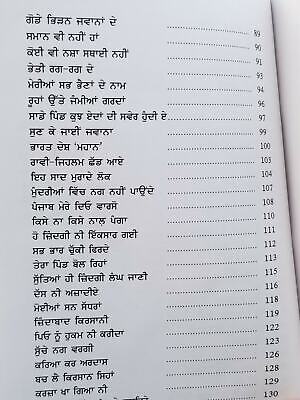 ਗੋਡੇ ਭਿੜਨ ਜਵਾਨਾਂ ਦੇ 89
ਸਮਾਨ ਵੀ ਨਹੀਂ ਹਾਂ 90
ਕੋਈ ਵੀ ਨਸ਼ਾ ਸਥਾਈ ਨਹੀਂ 91
ਭੇਤੀ ਰਗ-ਰਗ ਦੇ 92
ਮੇਰੀਆਂ ਸਭ ਭੈਣਾਂ ਦੇ ਨਾਮ 94
ਰੂਹਾਂ ਉੱਤੇ ਜੰਮੀਆਂ ਗਰਦਾਂ 96
ਸਾਡੇ ਪਿੰਡ ਕੁਝ ਏਦਾਂ ਦੀ ਸਵੇਰ ਹੁੰਦੀ ਏ 97
ਸੁਣ ਕੇ ਜਾਈਂ ਜਵਾਨਾ 99
ਭਾਰਤ ਦੇਸ਼ 'ਮਹਾਨ' 100
ਰਾਵੀ-ਜਿਹਲਮ ਛੱਡ ਆਏ 103
ਇਹ ਸਾਦ ਮੁਰਾਦੇ ਲੋਕ 104
ਮੁੰਦਰੀਆਂ ਵਿੱਚ ਨਗ ਨਹੀਂ ਪਾਉਂਦੇ 107
ਪੰਜਾਬ ਮੇਰੇ ਦਿਓ ਵਾਰਸੋ 108
ਕਿਸੇ ਨਾ ਕਿਸੇ ਨਾਲ ਪੰਗਾ 110
ਹੋ ਜ਼ਿੰਦਗੀ ਨੀ ਇੱਕਸਾਰ ਗਈ 111
ਸਭ ਭਾਰ ਚੁੱਕੀ ਫਿਰਦੇ 112
ਤੇਰਾ ਪਿੰਡ ਬੋਲ ਰਿਹਾਂ 113
ਸੁੱਤਿਆਂ ਹੀ ਜ਼ਿੰਦਗੀ ਲੰਘ ਜਾਣੀ 115
ਦੱਸ ਨੀ ਅਜ਼ਾਦੀਏ 116
ਮੋਈਆਂ ਸਨ ਸੱਧਰਾਂ 118
ਜ਼ਿੰਦਾਬਾਦ ਕਿਰਸਾਨੀ 119
ਪਿਓ ਨੂੰ ਹੁਕਮ ਨੀ ਕਰੀਦਾ 122
ਸੁੱਚੇ ਨਗ ਵਰਗੀ 124
ਕਰਿਆ ਕਰ ਅਰਦਾਸ 126
ਬਚ ਲੈ ਕਿਰਸਾਨ ਸਿਹਾਂ 128
ਕਰਜ਼ਾ ਖਾ ਗਿਆ ਨੀ 130